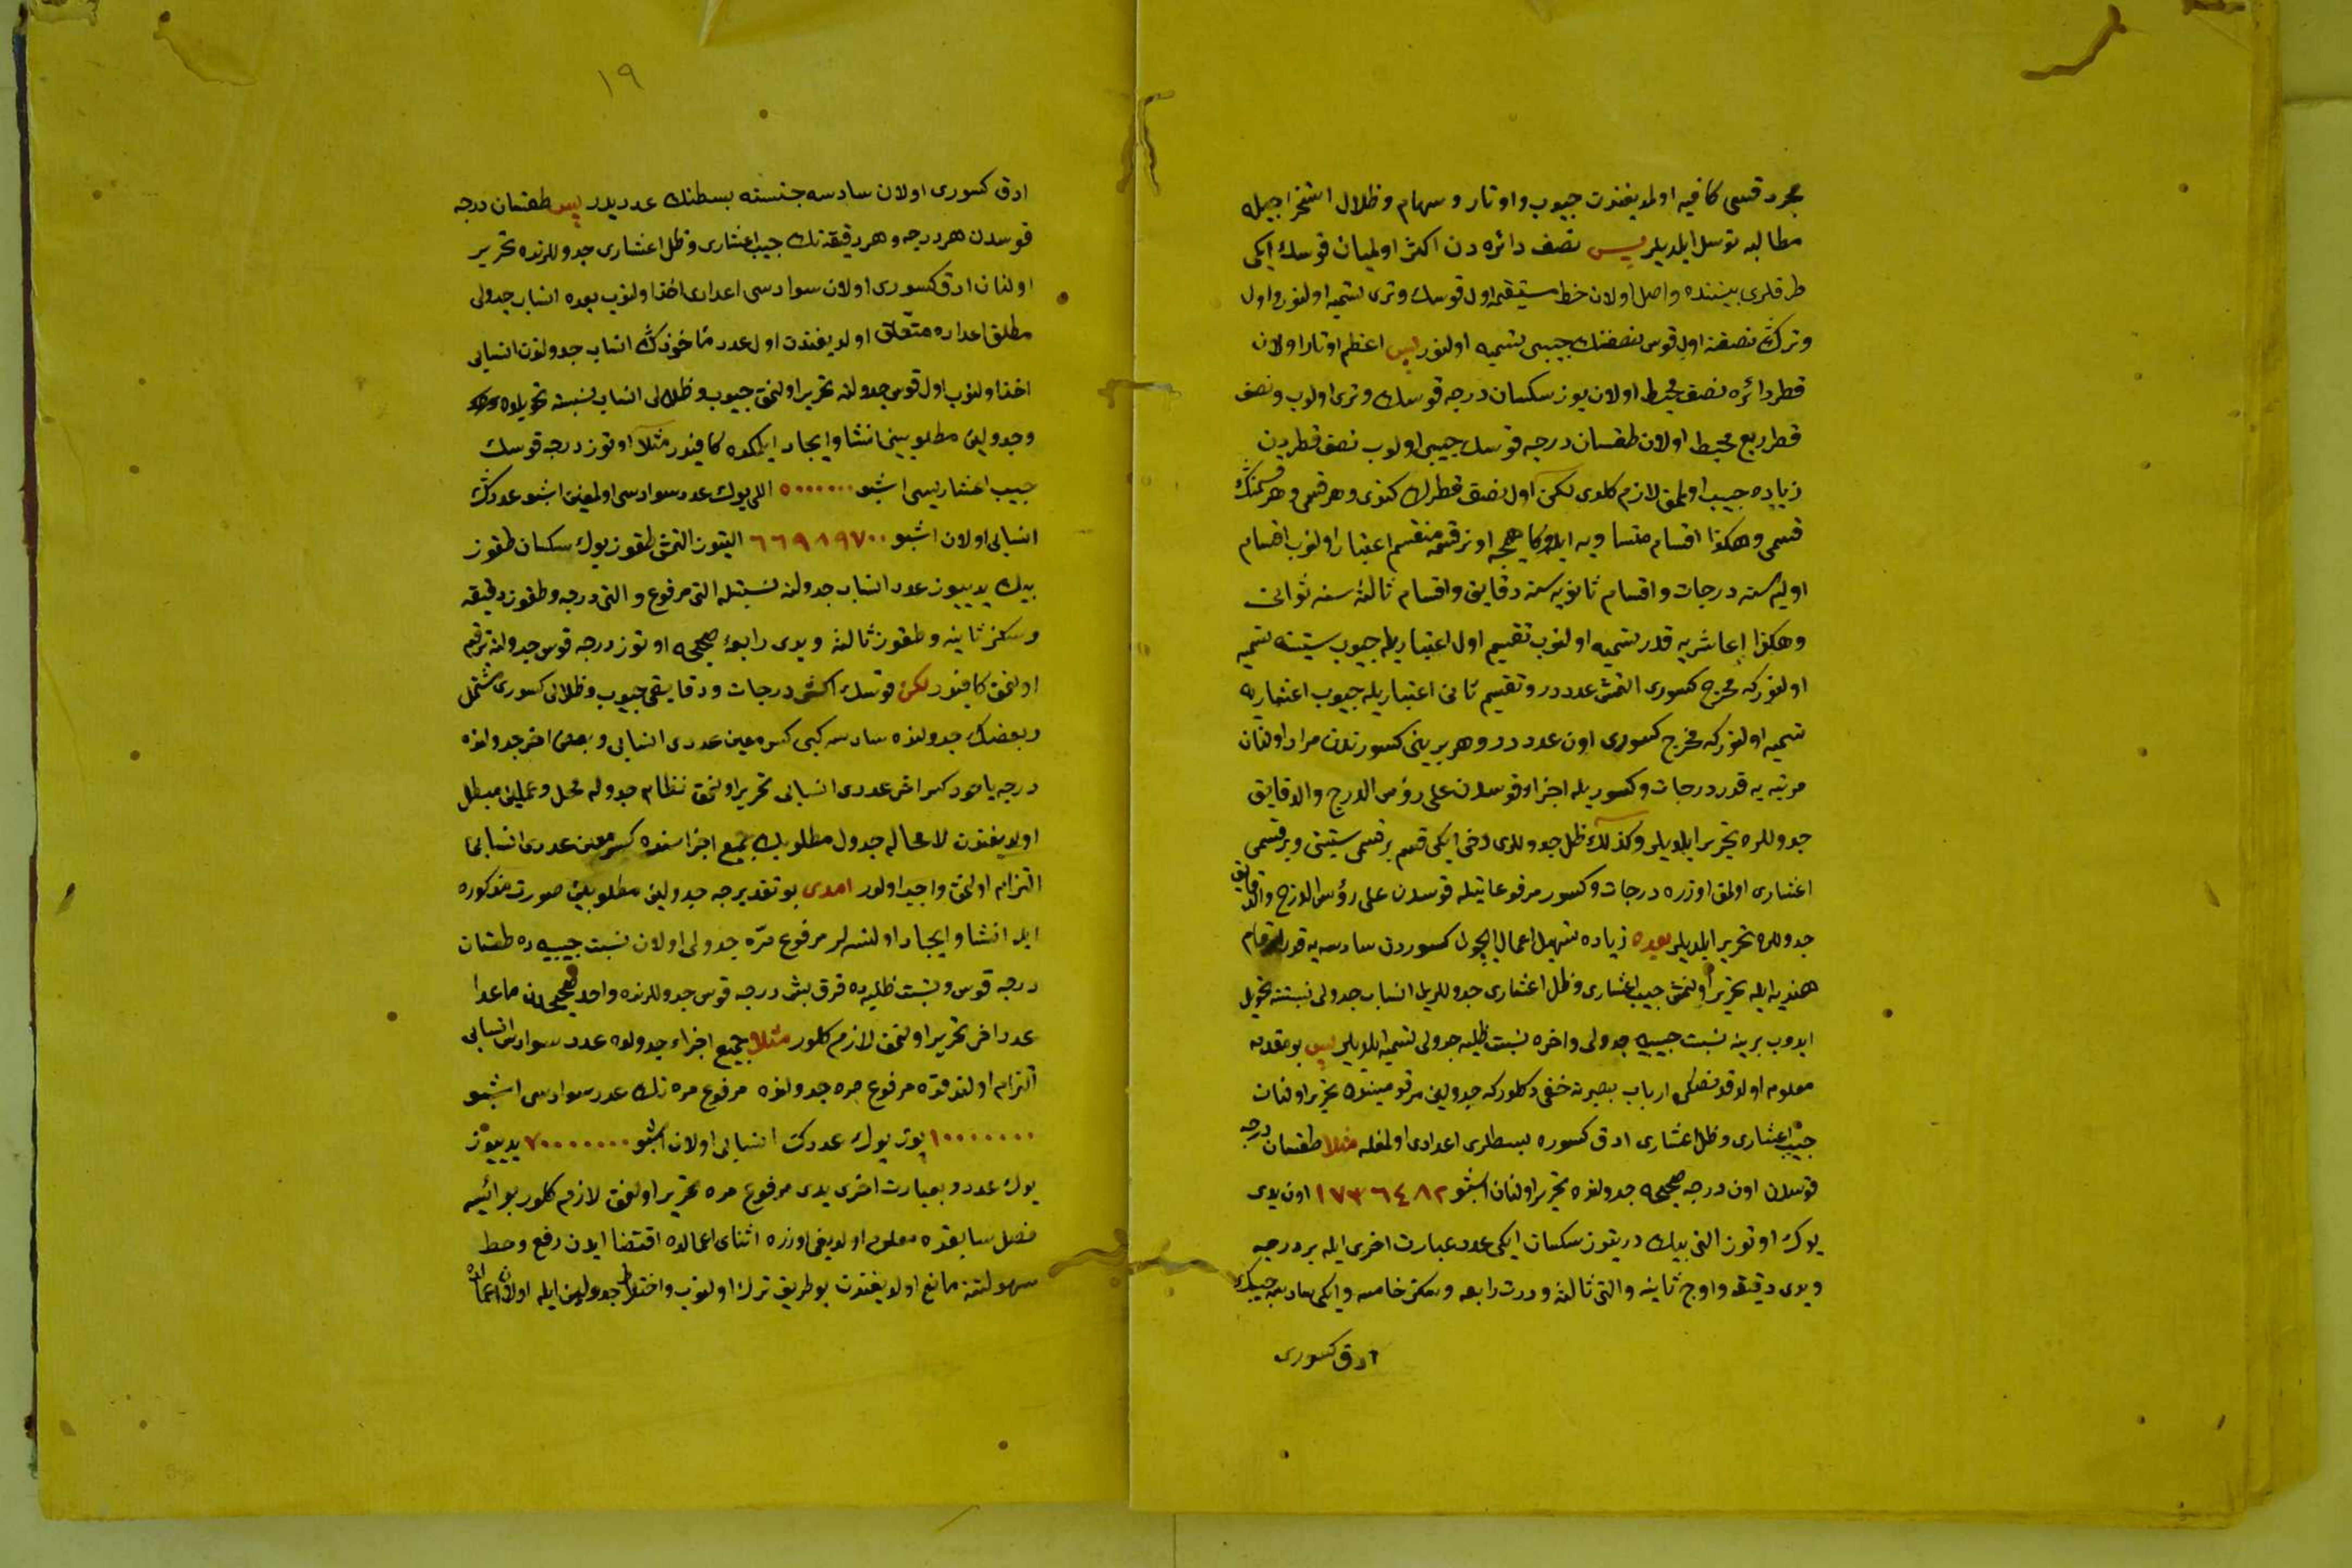 مجرد قسی كافيه اولمديغندن جيوب و اوتار و سهام و ظلال استخراجيله
مطالبه توسل ايلديلر پس نصف دائره دن اكثر اولميان قوسك ايكی
طرفلری بيننده واصل اولان خط مستقيمه اول قوسك وتری تسميه اولنور و اول
وترك نصفنه اول قوس نصفنك جيبی تسميه اولنور پس اعظم اوتار اولان
قطر دائره نصف محيط اولان يوز سكسان درجه قوسك وتری اولوب و نصف
قطر ربع محيط اولان طقسان درجه قوسك جيبی اولوب نصف قطردن
زياده جيب اولمق لازم كلدی لكن اول نصف قطرك كندی و هر قسمی و هر قسمنك
قسمی و هكذا اقسام متساويه ايله اونر قسمه منقسم اعتبار اولنوب اقسام
اوليه سنه درجات و اقسام ثانويه سنه دقايق و اقسام ثالثه سنه ثوانی
و هكذا عاشريه قدر تسميه اولنوب تقسيم اول اعتباريله جيوب ستينيه تسميه
اولنور كه مخرج كسوری التمش عدددر و تقسيم ثانی اعتباريله جيوب اعشاريه
تسميه اولنور كه مخرج كسوری اون عدددر و هر برينی كسورتدن مراد اولنان
مرتبه يه قدر درجات و كسوريله اجزاء قوسدن علی رؤس الدرج والدقايق
جدوللره تحرير ايلديلر و كذلك ظل جدوللری دخی ايكی قسم بر قسمی ستينی و بر قسمی
اعشاری اولمق اوزره درجات و كسور مرفوعاتيله قوسدن علی رؤس الدرج والدقايق
جدوللره تحرير ايلديلر بعده زياده تسهيل اعمال ايچون كسوردن سادسه يه قدر ارقام
هنديه ايله تحرير اولنمش جيب اعشاری و ظل اعشاری جدوللريله انساب جدولی نسبتنه تحويل
ايدوب برينه نسبت جيبيه جدولی و اخره نسبت ظليه جدولی تسميه ايلديلر پس بو مقدمه
معلوم اولدقدنصكره ارباب بصيرته خفی دكلدر كه جدولين مرقومينده تحرير اولنان
جيب اعشاری و ظل اعشاری ادق كسوره بسطلری اعدادی اولمغله مثلا طقسان درجه
قوسدن اون درجه صحيحه جدولنده تحرير اولنان اشبو ١٧٣٦٤٨٢ اون يدی
يوك اوتوز التی بيك دريتوز سكسان ايكی عدد عبارت اخری ايله بر درجه
و يدی دقيقه و اوچ ثانيه و التی ثالثه و درت رابعه و سكز خامسه و ايكی سادسه جيبك
ادق كسوری
١٩
ادق كسوری اولان سادسه جنسنه بسطنك عدديدر پس طقسان درجه
قوسدن هر درجه و هر دقيقه نك جيب اعشاری و ظل اعشاری جدوللرنده تحرير
اولنان ادق كسوری اولان سوادسی اعدادی اخذ اولنوب بعده انساب جدولی
مطلق اعداده متعلق اولديغندن اول عدد مأخوذك انساب جدولندن انسابی
اخذ اولنوب اول قوس جدولنه تحرير اولنمق جيوب و ظلالی انساب نسبته تحويلده
و جدولين مطلوبينی انشا و ايجاد ايلمكده كافيدر مثلا اوتوز درجه قوسك
جيب اعشاريسی اشبو ٥٠٠٠٠٠٠ اللی يوك عدد سوادسی اولمغين اشبو عددك
انسابی اولان اشبو ٦٦٩٨٩٧٠٠ التيوز التمش طقوز يوك سكسان طقوز
بيك يدييوز عدد انساب جدولنه نسبتله التی مرفوع و التی درجه و طقوز دقيقه
و سكز ثانيه و طقوز ثالثه و يدی رابعه صحيحه اوتوز درجه قوس جدولنه ترقيم
اولنمق كافيدر لكن قوسك اكثر درجات و دقايقی جيوب و ظلالی كسوری مشتمل
و بعضك جدولنده سادسه كبی كسر معين عددی انسابی و بعض اخر جدولنده
درجه ياخود كسر اخر عددی انسابی تحرير اولنمق نظام جدوله مخل و عملين مبطل
اولديغندن لا محاله جدول مطلوبك جميع اجزاسنده كسر معين عددی انسابی
التزام اولنمق واجب اولور امدی بو تقديرجه جدولين مطلوبين صورت مذكوره
ايله انشا و ايجاد اولنسه لر مرفوع مره جدولی اولان نسبت جيبيه ده طقسان
درجه قوس و نسبت ظليه ده قرق بش درجه قوس جدوللرنده واحد صحيحدن ماعدا
عدد اخر تحرير اولنمق لازم كلور مثلا جميع اجزاء جدولده عدد سوادس انسابی
التزام اولندقده مرفوع مره جدولنده مرفوع مره نك عدد سوادسی اشبو
١٠٠٠٠٠٠٠ يوز يوك عددك انسابی اولان اشبو ٧٠٠٠٠٠٠٠ يدييوز
يوك عدد و بعبارت اخری يدی مرفوع مره تحرير اولنمق لازم كلور بو ائسه
فصل سابقده معلوم اولديغی اوزره اثنای اعمالده اقتضا ايدن رفع و حط
سهولتنه مانع اولديغندن بو طريق ترك اولنوب و اختلاط جدولين ايله اولان اعمالده